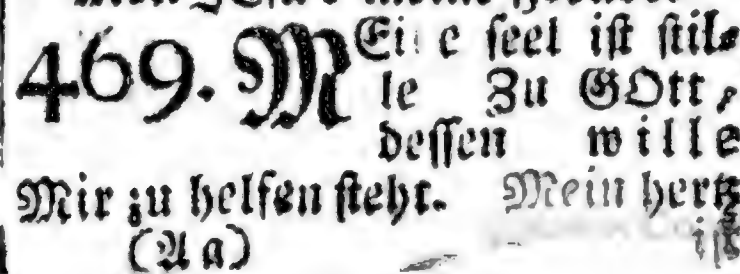 469. MEine seel ist stil=
le Zu GOtt,
dessen wille
Mir zu helfen steht. Mein hertz
(A a) ist